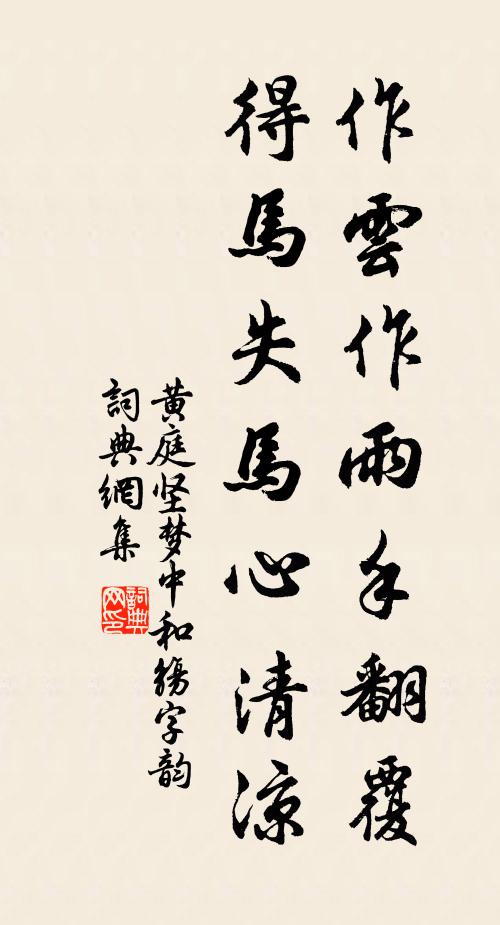 作雲作雨手翻覆
得馬失馬心清涼
黄庭坚梦中和觞字韵
詞典網集
詞典网印